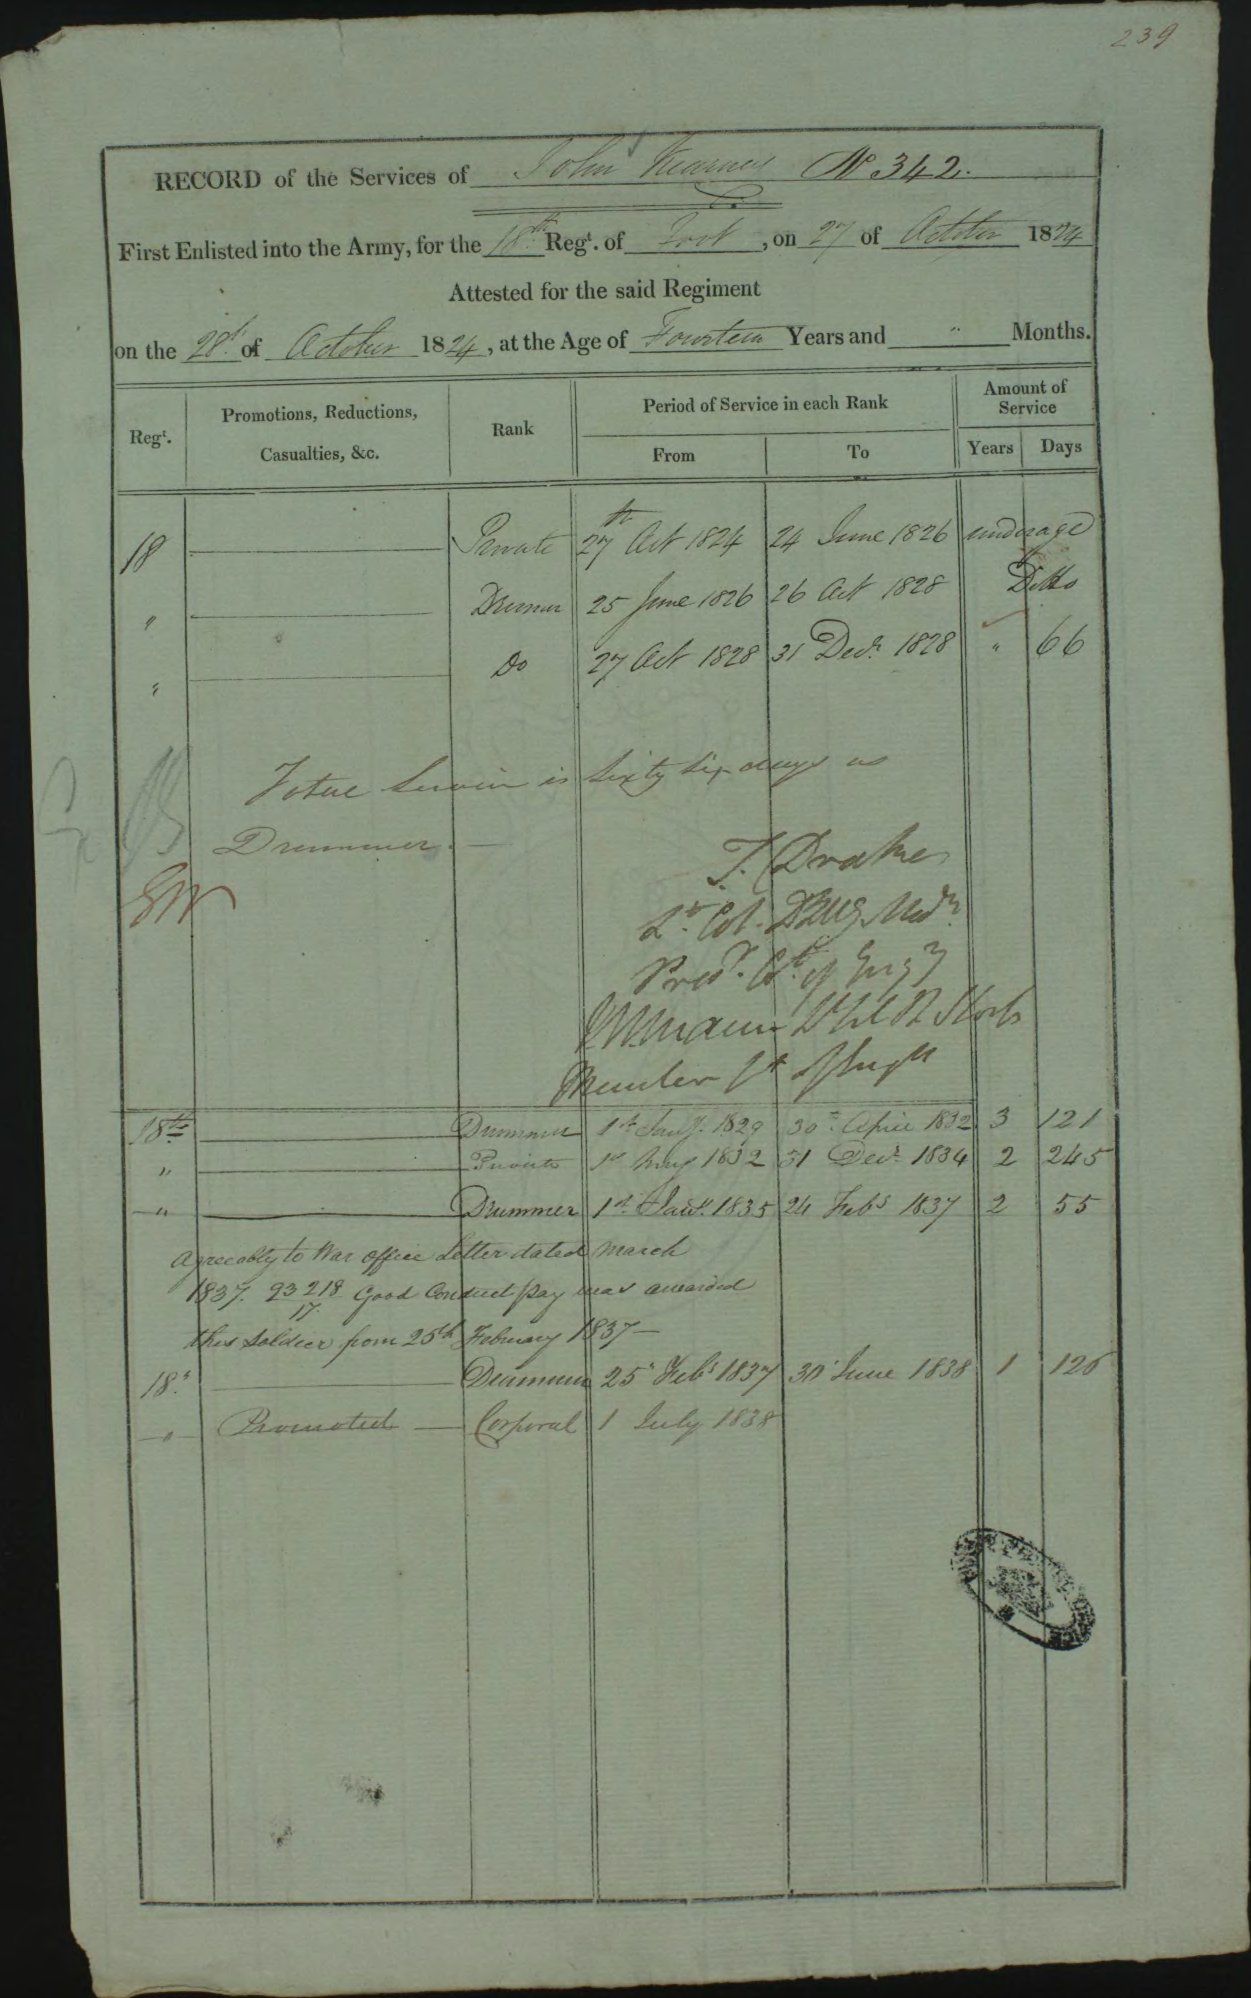 239
RECORD of the Services of John Kearney No 342.
First Enlisted into the Army, for the 18th Regt. of Foot, on 27 of October 1824
Attested for the said Regiment
on the 28th of October 1824, at the Age of Fourteen Years and " Months.
Regt. Promotions, Reductions, Casualties, &c. Rank Period of Service in each Rank Amount of Service
From To Years Days
18 Private 27th Oct 1824 24 June 1826 underage
" Drumr 25 June 1826 26 Oct 1828 Ditto
" Do 27 Oct 1828 31 Decr. 1828 " 66
Total Service is Sixty Six days as
Drummer.
T. Drake
Lt. Col.
Presdt. Ct. of Enqy
Member Ct of Enqy
18th Drummer 1st Jany. 1829 30th April 1832 3 121
" Private 1st May 1832 31 Decr. 1834 2 245
" Drummer 1st Jany. 1835 24 Feby 1837 2 55
Agreeably to War Office Letter dated March
1837. 93218/17. Good Conduct pay was awarded
this Soldier from 25th February 1837 —
18th Drummer 25th Feby 1837 30 June 1838 1 126
" Promoted — Corporal 1 July 1838